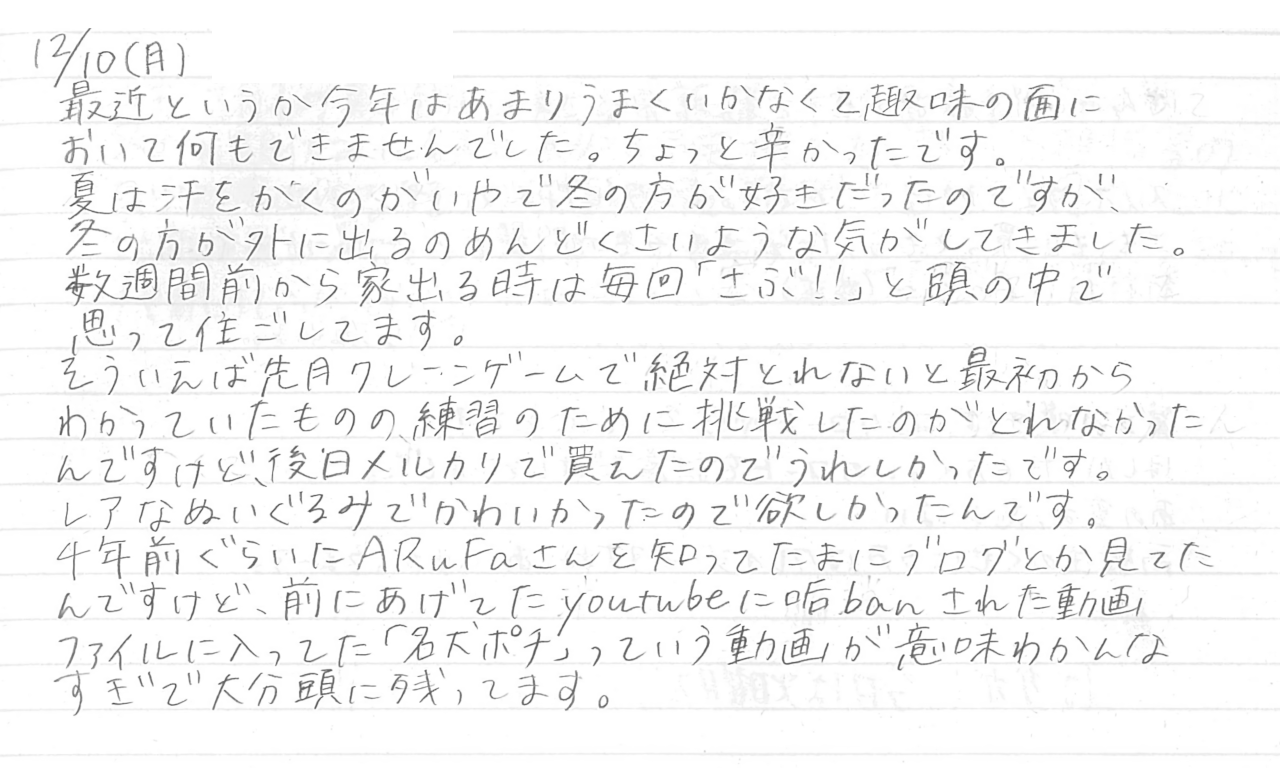 12/10(月)
最近というか今年はあまりうまくいかなくて趣味の面に
おいて何もできませんでした。ちょっと辛かったです。
夏は汗をかくのがいやで冬の方が好きだったのですが、
冬の方が外に出るのめんどくさいような気がしてきました。
数週間前から家出る時は毎回「さぶ!!」と頭の中で
思って住ごしてます。
そういえば先月クレーンゲームで絶対とれないと最初から
わかっていたものの、練習のために挑戦したのがとれなかった
んですけど、後日メルカリで買えたのでうれしかったです。
レアなぬいぐるみでかわいかったので欲しかったんです。
千年前ぐらいにARuFaさんを知ってたまにブログとか見てた
んですけど、前にあげてたyoutubeに垢banされた動画
ファイルに入ってた「名犬ポチ」っていう動画が意味わかんな
すぎで大分頭に残ってます。